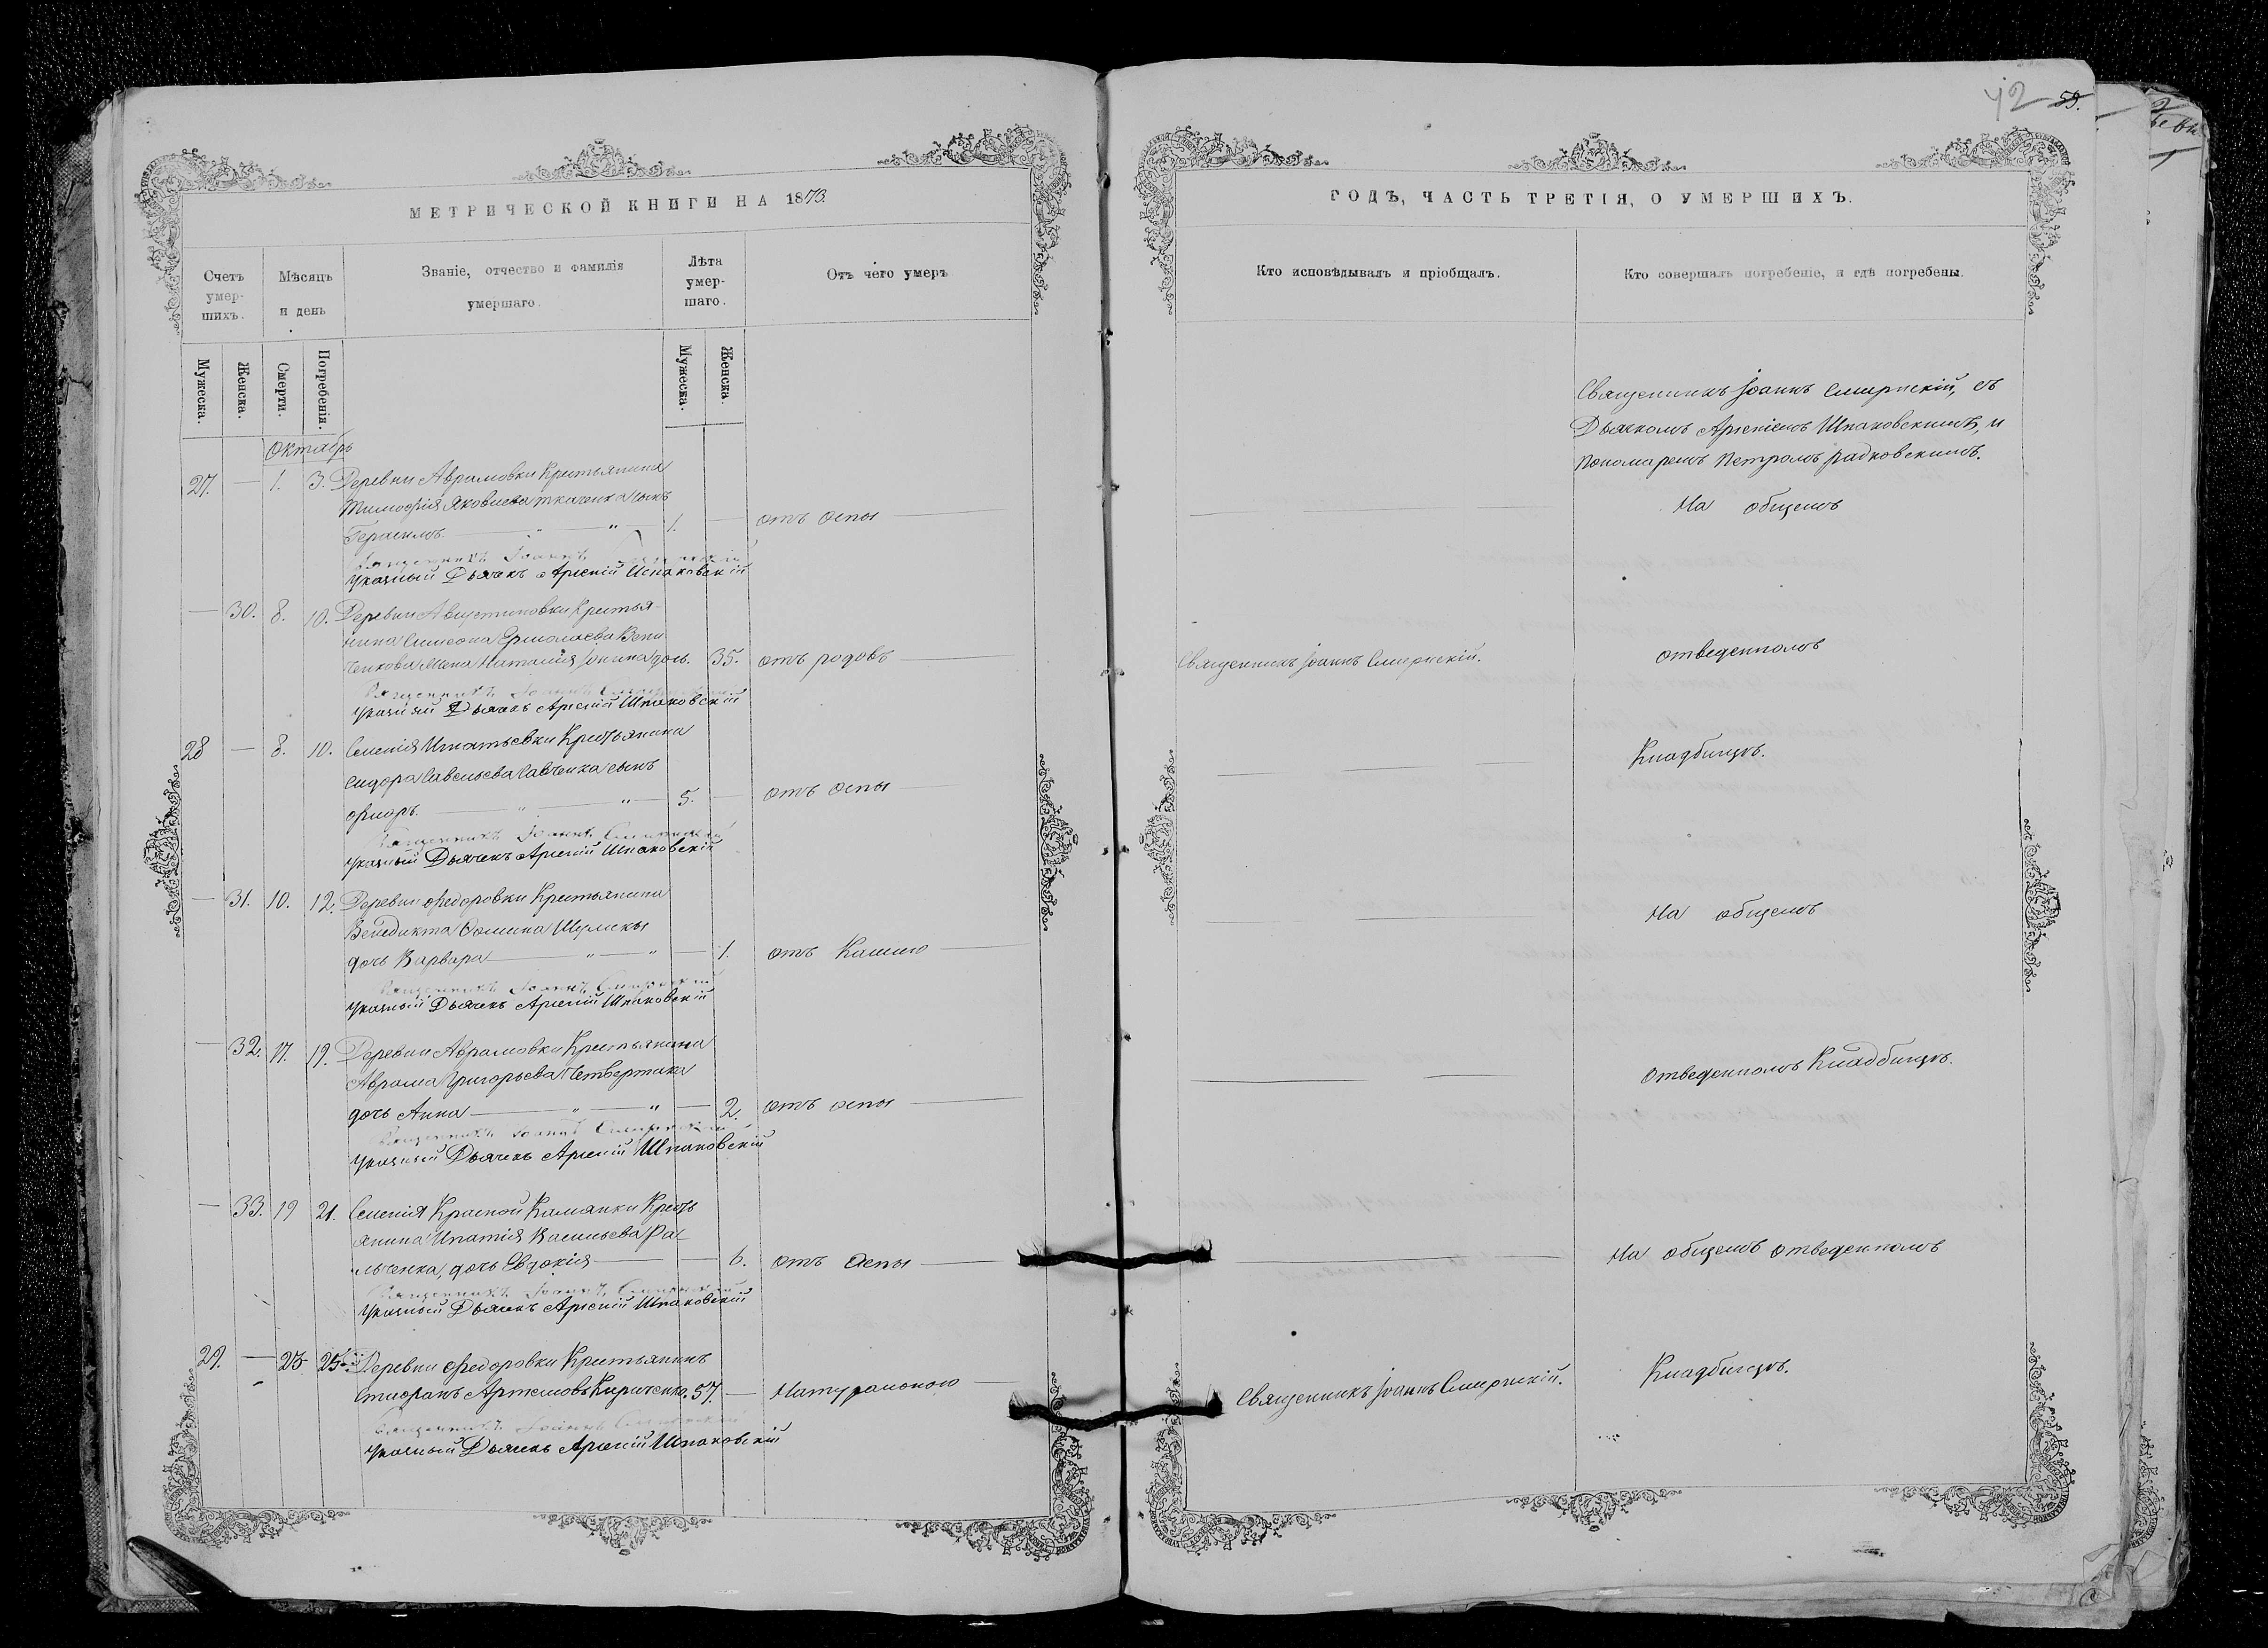 МЕТРИЧЕСКОЙ КНИГИ НА 1873.
Счетъ умер-шихъ.
Мѣсяцъ и день
Званіе, отчество и фамилія умершаго.
Лѣта умер-шаго.
Отъ чего умеръ
Мужеска.
Женска.
Смерти.
Погребенія.
Мужеска.
Женска.
Октябрь
27. — 1. 3. Деревни Аврамовки Крестьянина
Тимофія Яковлева Ткаченка сынъ
Герасимъ. — " — " — 1. — отъ оспы
Священникъ Іоаннъ
Указный Дьячекъ Арсеній Шпаковскій
— 30. 8. 10. Деревни Августиновки Крестья-
нина Симеона Ермолаева
жена Наталія дочь. 35. отъ родовъ
Священникъ Іоаннъ
Указный Дьячекъ Арсеній Шпаковскій
28 — 8. 10. Селенія Игнатьевки Крестьянина
Сидора Савельева Савченка сынъ
Флоръ. — " — " — 5. — отъ оспы
Священникъ Іоаннъ
Указный Дьячекъ Арсеній Шпаковскій
— 31. 10. 12. Деревни Федоровки Крестьянина
Венедикта Фомина
дочь Варвара — " — " — 1. отъ Кашлю
Священникъ Іоаннъ
Указный Дьячекъ Арсеній Шпаковскій
— 32. 17. 19. Деревни Аврамовки Крестьянина
Аврама Григорьева Четвертака
дочь Анна — " — " — 2. отъ оспы
Священникъ Іоаннъ
Указный Дьячекъ Арсеній Шпаковскій
— 33. 19 21. Селенія Красной Камянки Кресть
янина Игнатія Васильева Ра
льченка, дочь Евдокія — 6. отъ Оспы
Священникъ Іоаннъ
Указный Дьячекъ Арсеній Шпаковскій
29. — 23. 25. Деревни Федоровки Крестьянинъ
Стефанъ Артемовъ Кириченко. 57. — Натуральною
Священникъ Іоаннъ
Указный Дьячекъ Арсеній Шпаковскій
42 59.
ГОДЪ, ЧАСТЬ ТРЕТІЯ, О УМЕРШИХЪ.
Кто исповѣдывалъ и пріобщалъ.
Кто совершалъ погребеніе, и гдѣ погребены.
Священникъ Іоаннъ Смирнскій, съ
Дьячкомъ Арсеніемъ Шпаковскимъ, и
пономаремъ Петромъ Радковскимъ.
На общемъ
Священникъ Іоаннъ Смирнскій.
отведенномъ
Кладбищѣ.
На общемъ
отведенномъ Кладбищѣ.
На общемъ отведенномъ
Священникъ Іоаннъ Смирнскій.
Кладбищѣ.